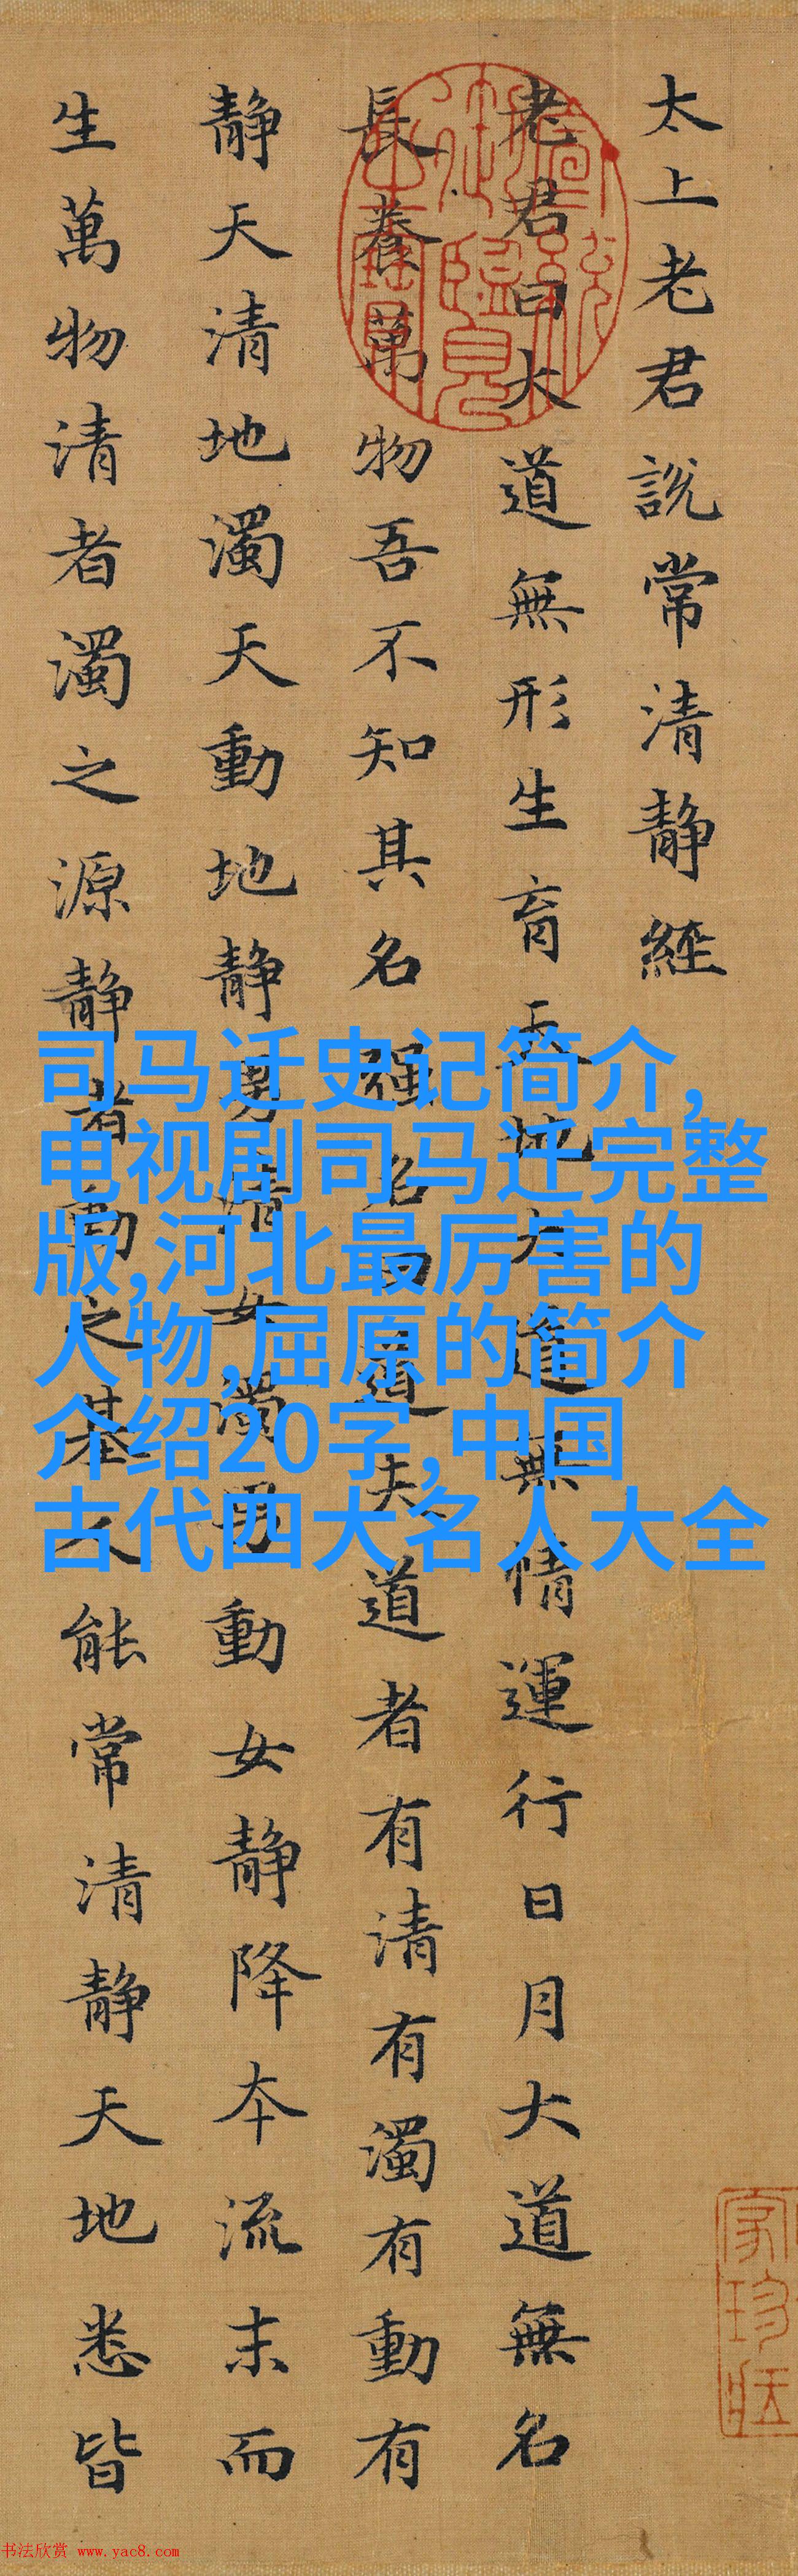 太上老君說常清靜經
老君曰大道無形生育天地大道無情運行日月大道無名
長養萬物吾不知其名强名曰道夫道者有清有濁有動有
靜天清地濁天動地靜男清女濁男動女靜降夲流末而
生萬物清者濁之源靜者動之基人能常清靜天地悉皆
宣統御覽之寶
司马迁史记简介,
电视剧司马迁完整
版,河北最厉害的
人物,屈原的简介
介绍20字,中国
古代四大名人大全
书法欣赏 www.yac8.com